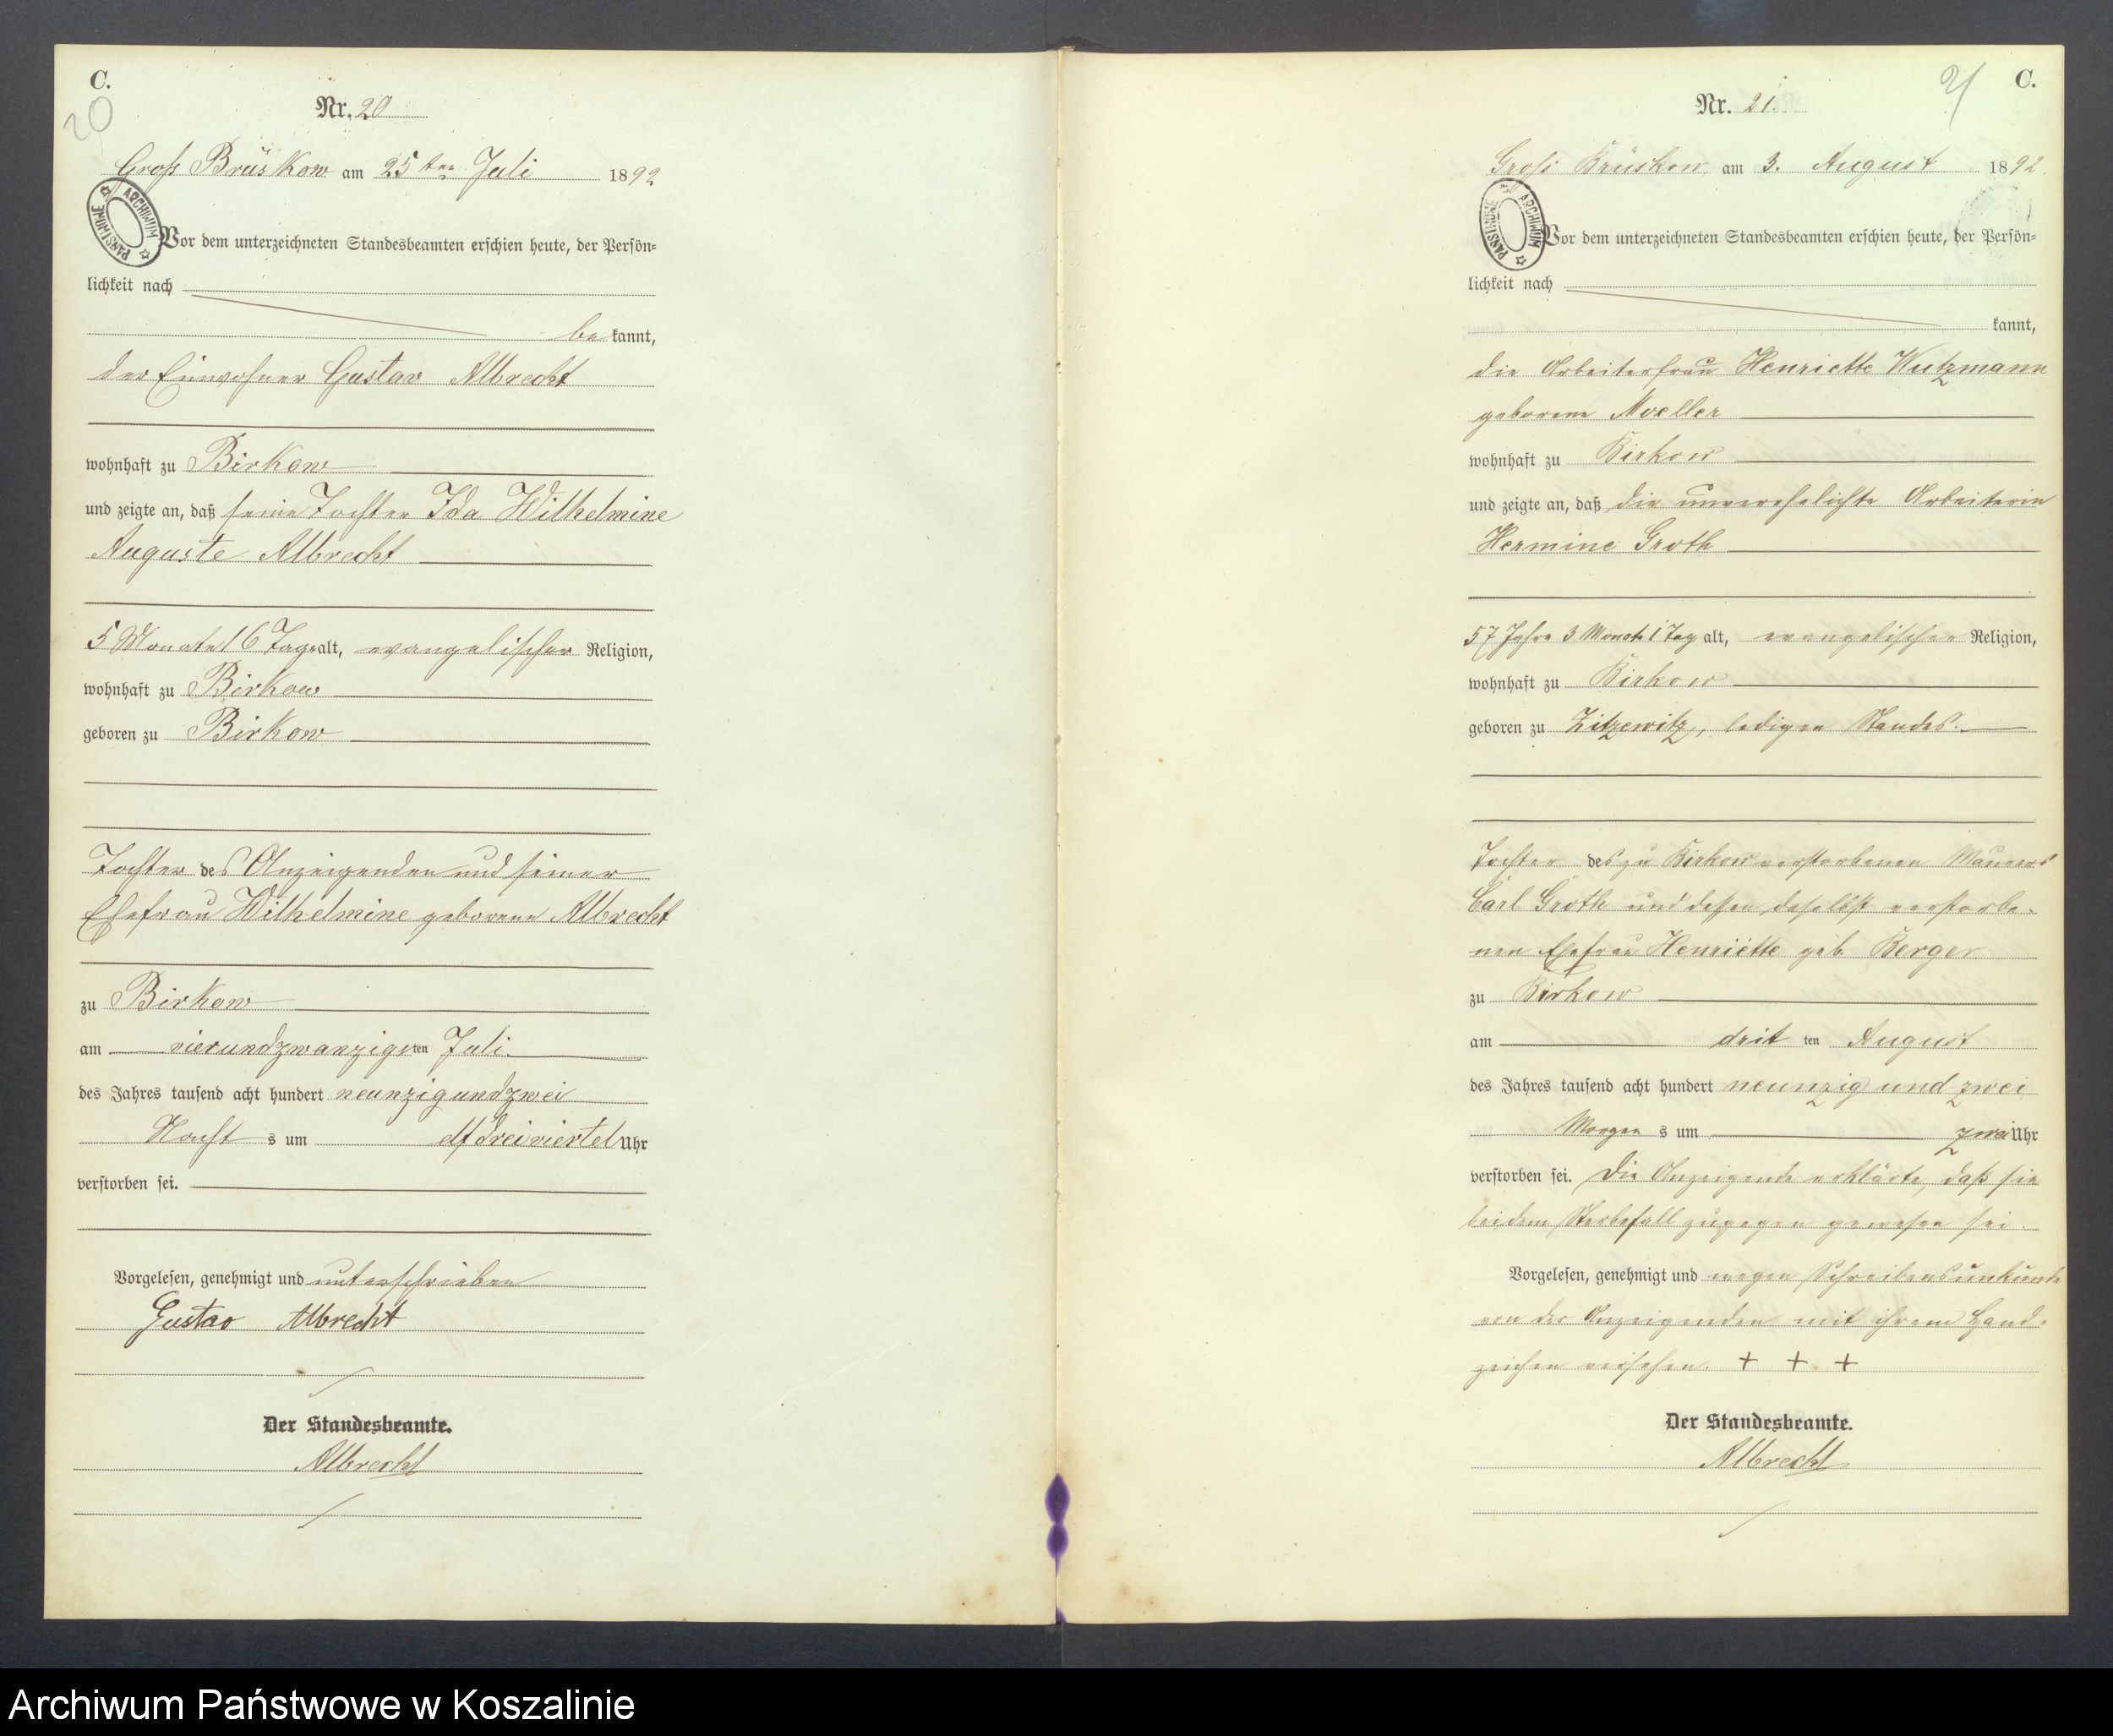 C.
20
Nr. 20
Groß Brüskow am 25ten Juli 1892
ARCHIWUM PAŃSTWOWE
Vor dem unterzeichneten Standesbeamten erschien heute, der Persön=
lichkeit nach
be kannt,
der Einwohner Gustav Albrecht
wohnhaft zu Birkow
und zeigte an, daß seine Tochter Ida Wilhelmine
Auguste Albrecht
5 Monate 16 Tage alt, evangelischer Religion,
wohnhaft zu Birkow
geboren zu Birkow
Tochter des Anzeigenden und seiner
Ehefrau Wilhelmine geborene Albrecht
zu Birkow
am vierundzwanzigsten Juli
des Jahres tausend acht hundert neunzig und zwei
Nacht s um elf dreiviertel Uhr
verstorben sei.
Vorgelesen, genehmigt und unterschrieben
Gustav Albrecht
Der Standesbeamte.
Albrecht
21 C.
Nr. 21.
Groß Brüskow am 3. August 1892.
ARCHIWUM PAŃSTWOWE
Vor dem unterzeichneten Standesbeamten erschien heute, der Persön=
lichkeit nach
kannt,
die Arbeiterfrau Henriette Wutzmann
geborene Moeller
wohnhaft zu Birkow
und zeigte an, daß die unverehelichte Arbeiterin
Hermine Groth
57 Jahre 3 Monate 1 Tag alt, evangelischer Religion,
wohnhaft zu Birkow
geboren zu Zitzewitz, ledigen Standes.
Tochter des zu Birkow verstorbenen Maurers
Carl Groth und dessen daselbst verstorbe-
nen Ehefrau Henriette geb. Berger
zu Birkow
am drit ten August
des Jahres tausend acht hundert neunzig und zwei
Morgen s um zwei Uhr
verstorben sei. Die Anzeigende erklärte, daß sie
bei dem Sterbefall zugegen gewesen sei.
Vorgelesen, genehmigt und wegen Schreibensunkunde
von der Anzeigenden mit ihrem Hand-
zeichen versehen. + + +
Der Standesbeamte.
Albrecht
Archiwum Państwowe w Koszalinie